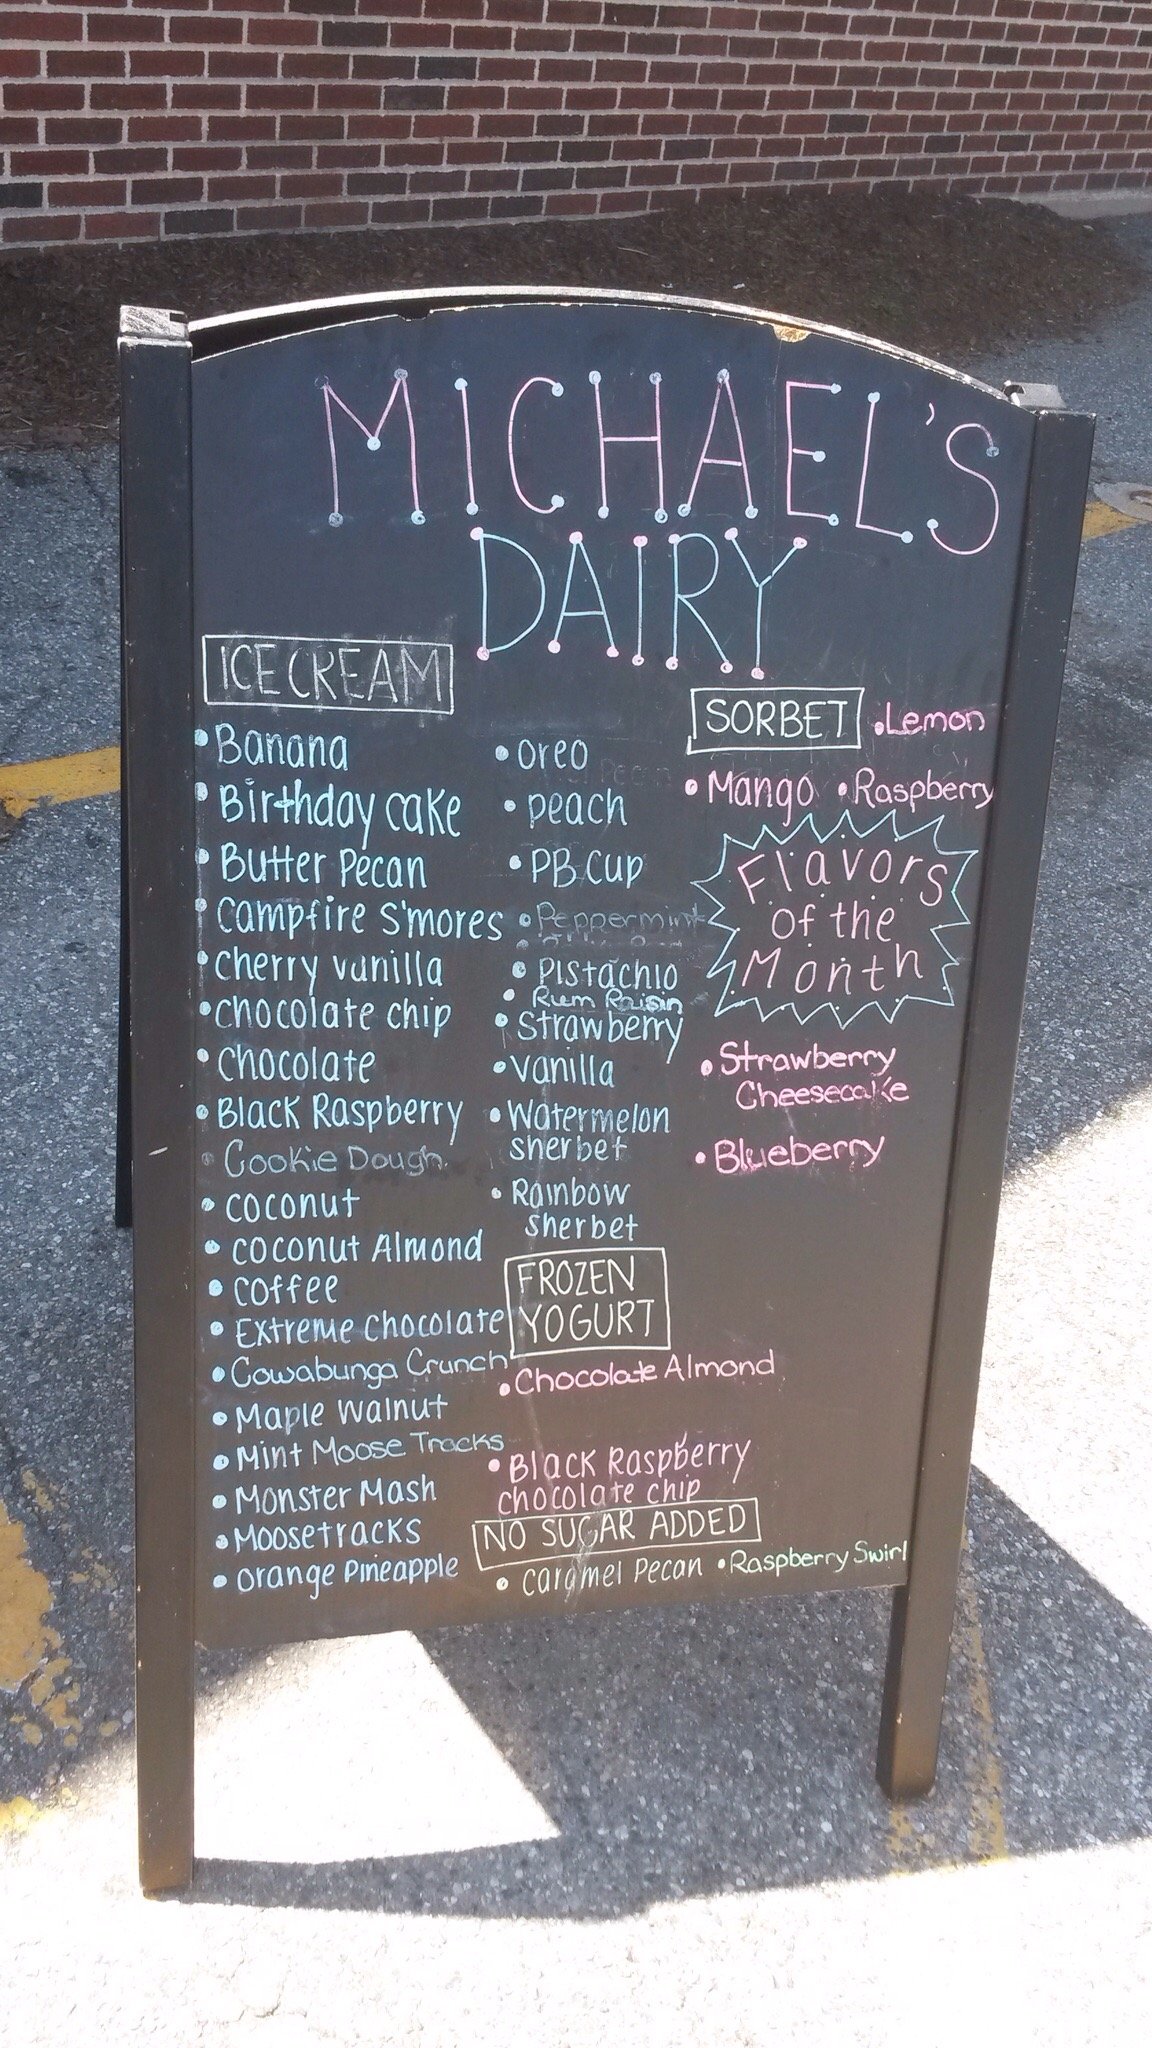 MICHAEL'S
DAIRY
ICE CREAM
• Banana
• Birthday cake
• Butter Pecan
• campfire S'mores
• cherry vanilla
• chocolate chip
• chocolate
• Black Raspberry
• Cookie Dough
• coconut
• coconut Almond
• coffee
• Extreme chocolate
• Cowabunga Crunch
• Maple walnut
• Mint Moose Tracks
• Monster Mash
• Moosetracks
• orange Pineapple
• oreo
• peach
• PB Cup
• Peppermint
• Pistachio
• Rum Raisin
• strawberry
• vanilla
• Watermelon
sherbet
• Rainbow
sherbet
FROZEN
YOGURT
• Chocolate Almond
• Black Raspberry
chocolate chip
NO SUGAR ADDED
• caramel Pecan • Raspberry Swirl
SORBET • Lemon
• Mango • Raspberry
Flavors
of the
Month
• Strawberry
Cheesecake
• Blueberry